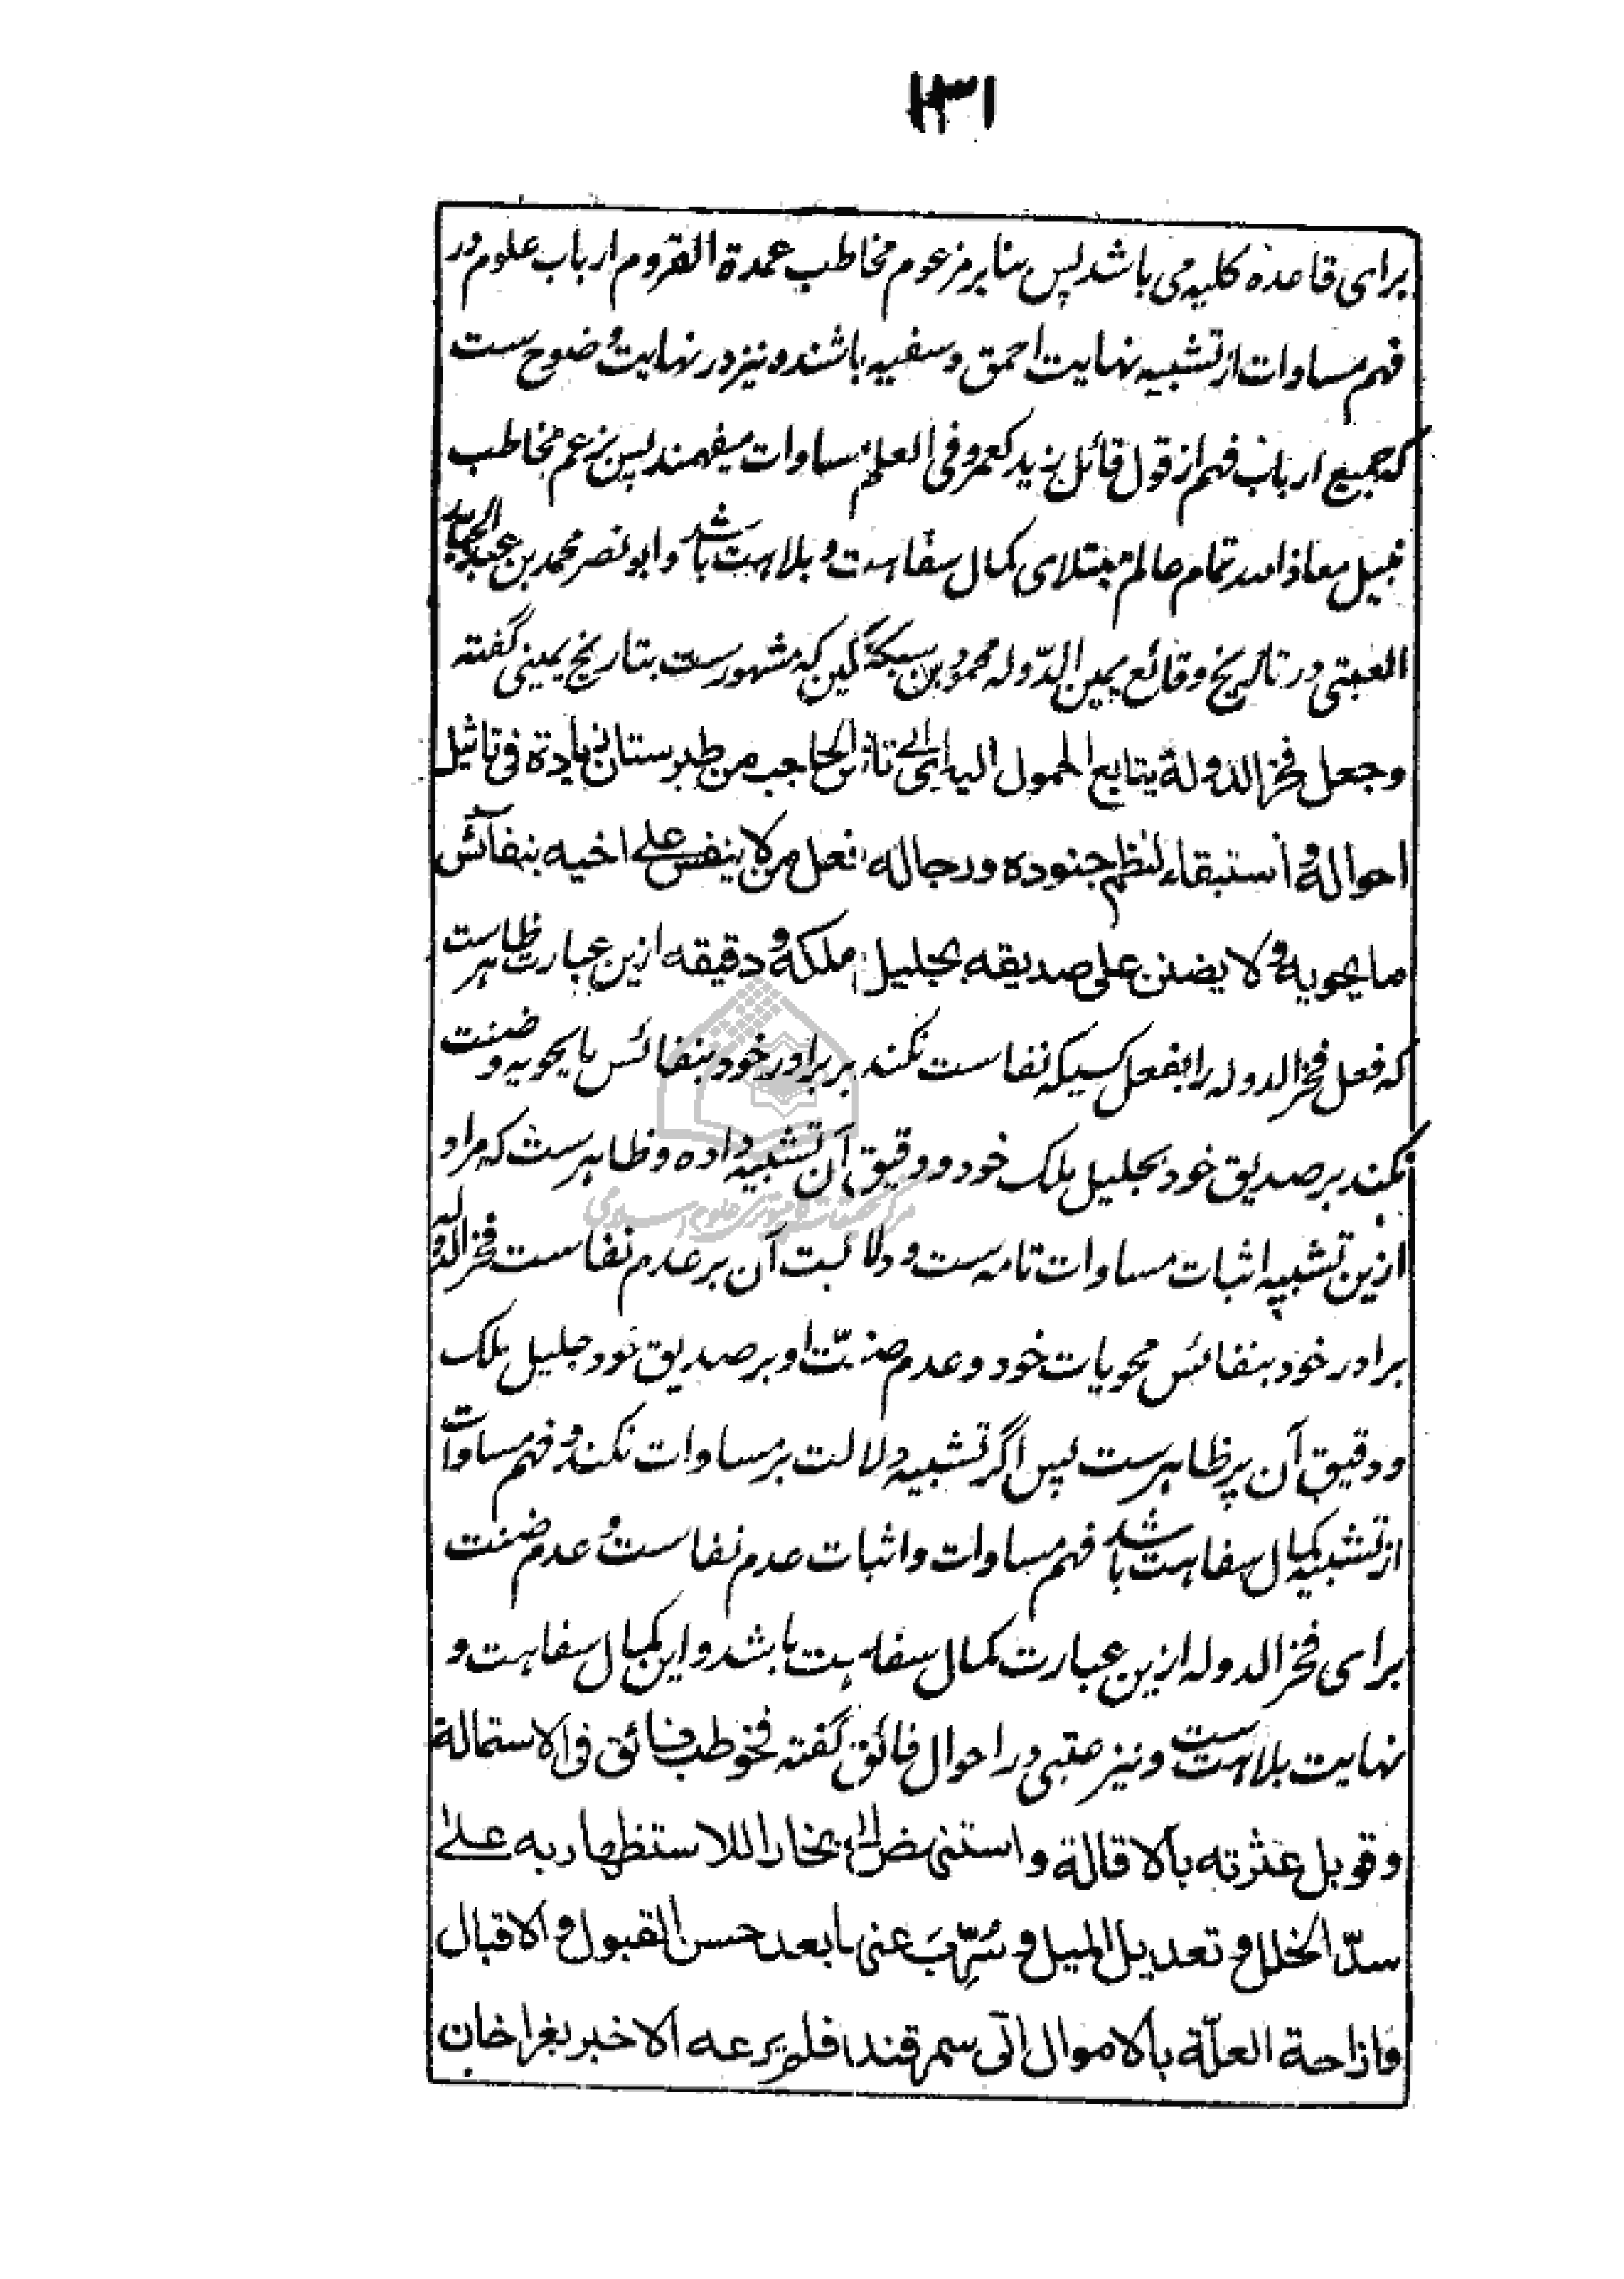 ۱۳۱
برای قاعدهٔ کلیه می باشد پس بنابر مزعوم مخاطب عمدة القروم ارباب علوم در
فهم مساوات از تشبیه نهایت احمق و سفیه باشند و نیز در نهایت وضوح ست
که جمیع ارباب فهم از قول قائل زید کعمرو فی العلم مساوات میفهمند پس بزعم مخاطب
نبیل معاذ الله تمام عالم مبتلای کمال سفاهت و بلاهت باشد و ابو نصر محمد بن عبد الجبار
العتبی در تاریخ وقائع یمین الدّوله محمود بن سبکتگین که مشهور ست بتاریخ یمینی گفته
وجعل فخر الدولة يتابع الحمول اليه ای الی تاش الحاجب من طبرستان زيادة فی تاثيل
احواله و استبقاء لنظم جنوده ورجاله فعل من لا ينفس على اخيه بنفائس
ما يحويه و لا يضنن على صديقه بجليل ملكه و دقيقه ازین عبارت ظاهر ست
که فعل فخر الدوله را بفعل کسیکه نفاست نکند بر برادر خود بنفائس ما یحویه و ضنت
نکند بر صدیق خود بجلیل ملک خود و دقیق آن تشبیه داده و ظاهر ست که مراد
ازین تشبیه اثبات مساوات تامه ست و دلالت آن بر عدم نفاست فخر الدوله
برادر خود بنفائس محویات خود و عدم ضنّت او بر صدیق خود جلیل ملک
و دقیق آن پر ظاهر ست پس اگر تشبیه دلالت بر مساوات نکند و فهم مساوات
از تشبیه کمال سفاهت باشد فهم مساوات و اثبات عدم نفاست و عدم ضنت
برای فخر الدوله ازین عبارت کمال سفاهت باشد و این کمال سفاهت و
نهایت بلاهت ست و نیز عتبی در احوال فائق گفته فخوطب فائق فی الاستمالة
وقوبل عثرته بالاقالة و استنهض الى بخارا للاستظهار به على
سدّ الخلل و تعديل الميل و سُرِّبَ عنها بعد حسن القبول و الاقبال
و ازاحة العلّة بالاموال الى سمرقند فلم يرعه الا خبر بغراخان
مرکز تحقیقات کامپیوتری علوم اسلامی